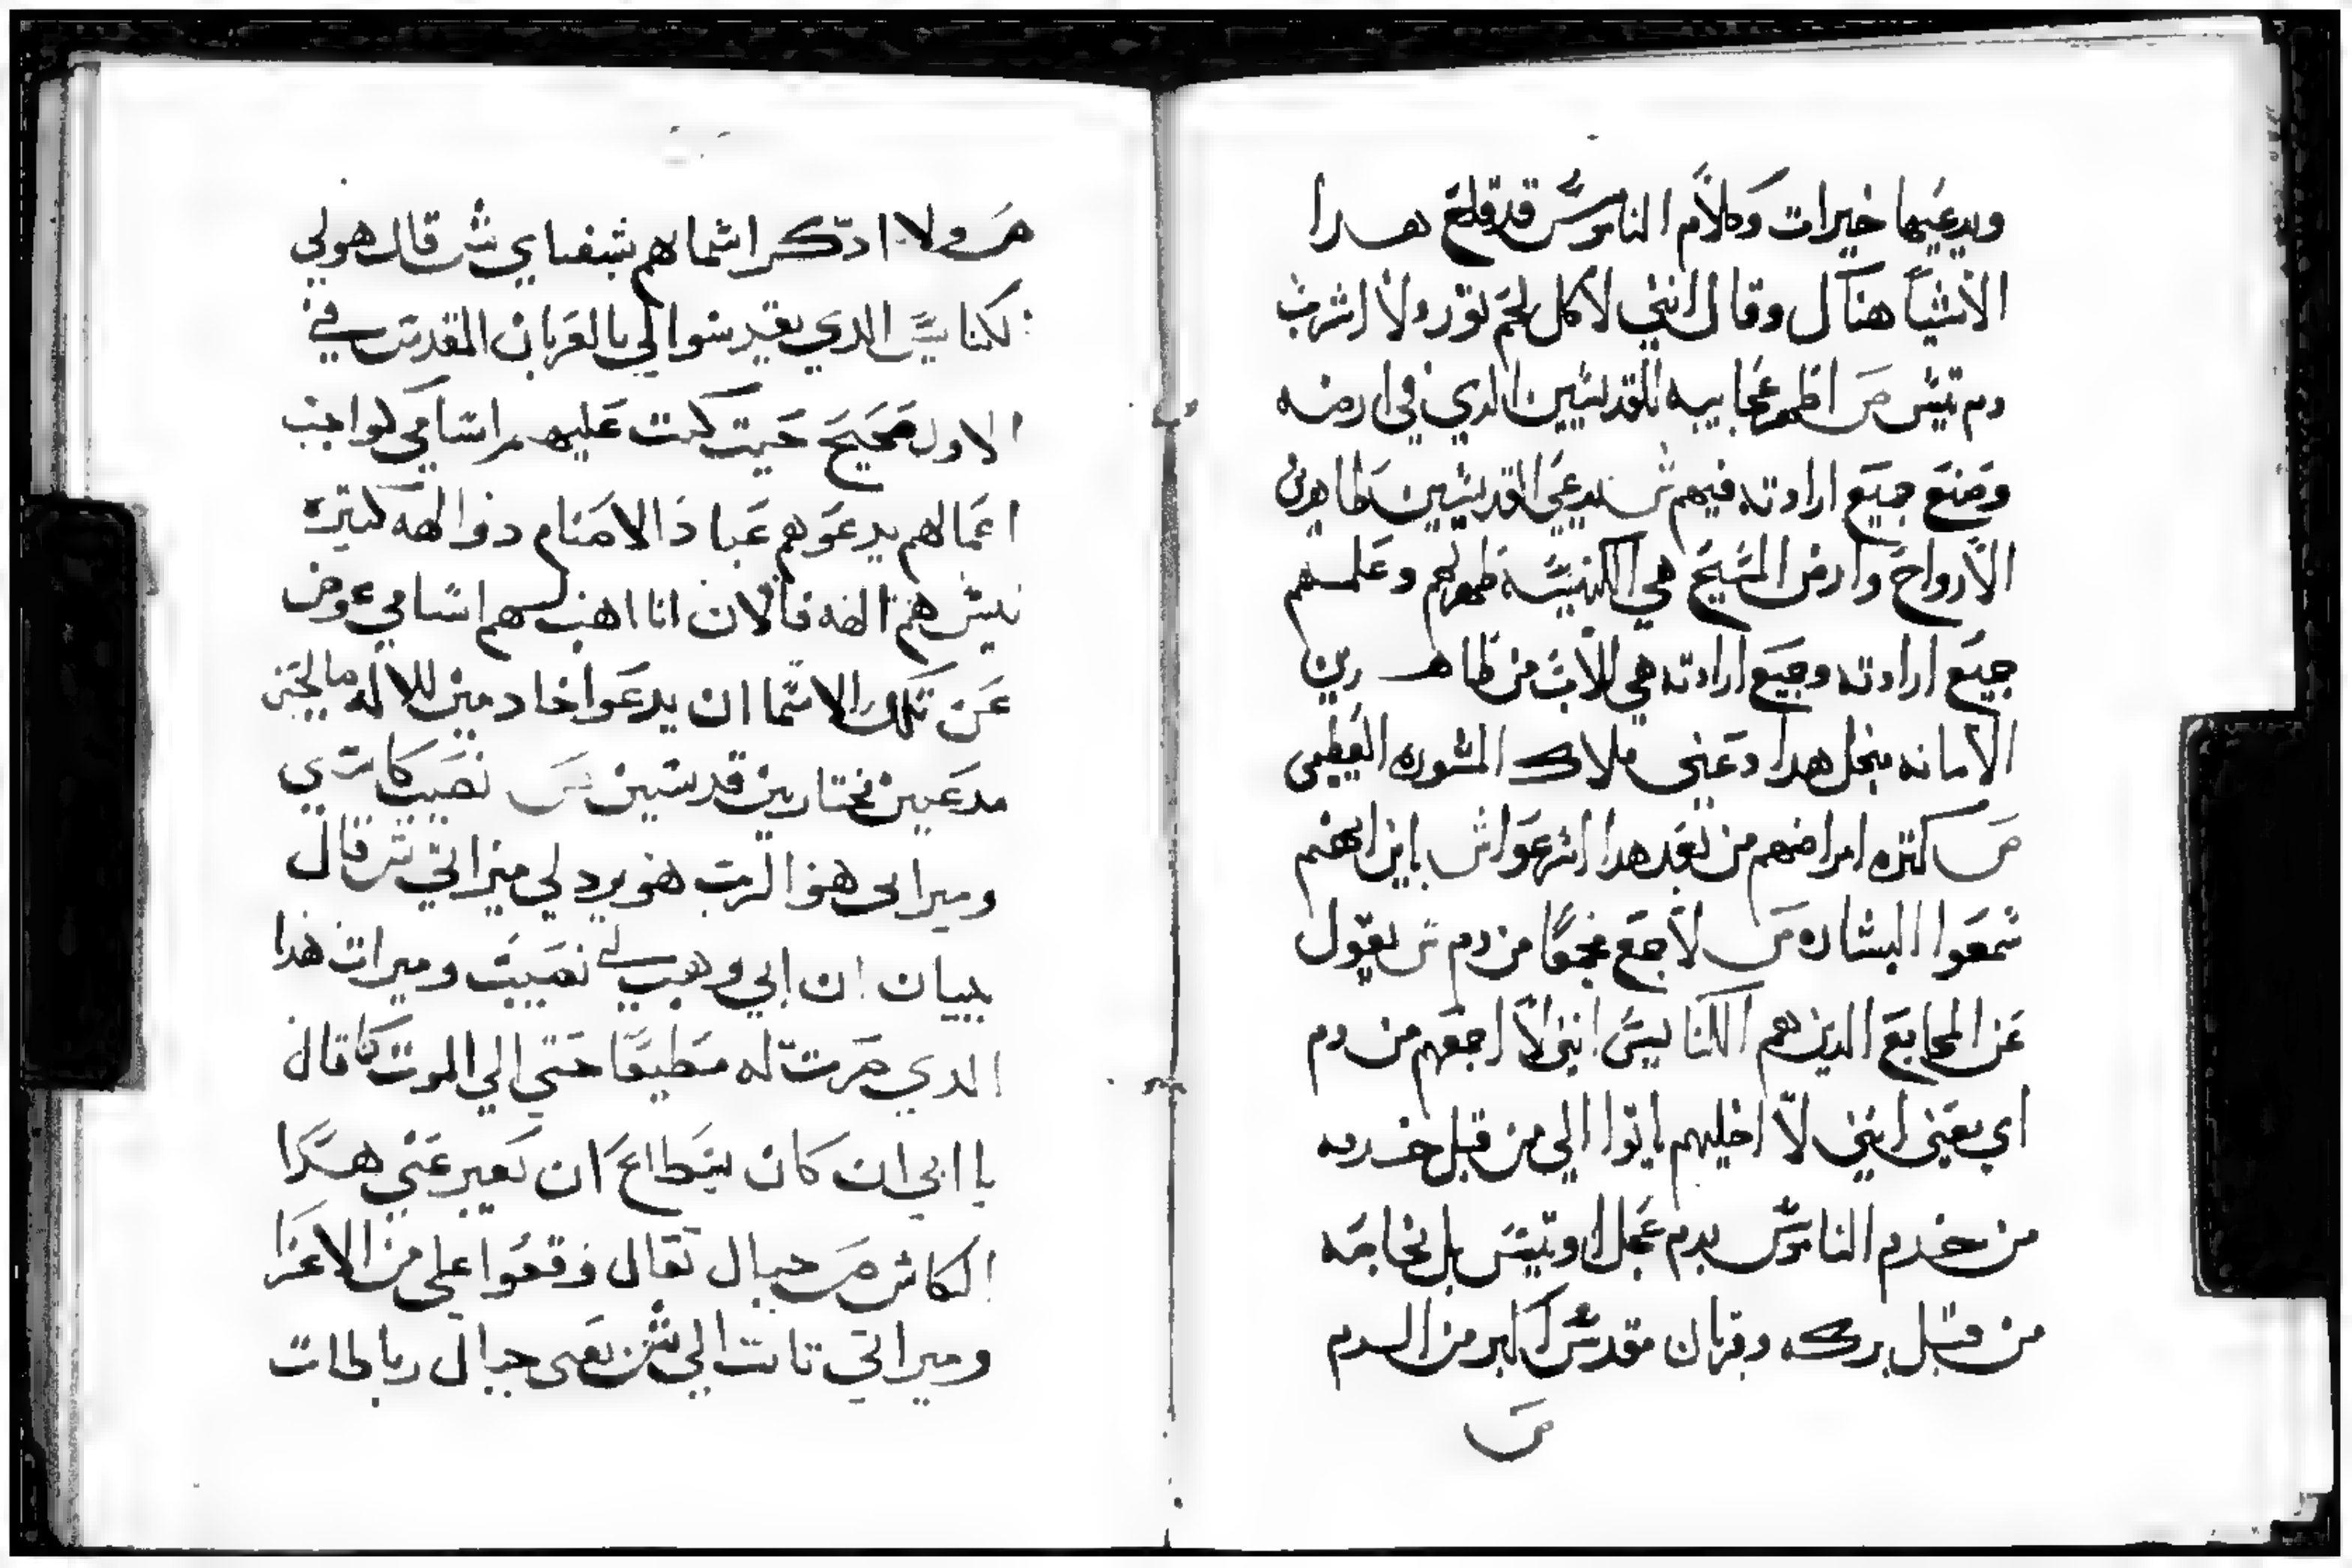 ويدعيها خيرات وكلام الناموس قد قلع هدا
الاشيا هناك وقال انني لا كل لحم تور ولا اشرب
دم تيس ص اظهر عجايبه للقديسين الدي في ارضه
وصنع جميع ارادته فيهم ش يدعي القديسين طاهرين
الارواح وارض المسيح هي الكنيسة ظهر لهم وعلمهم
جميع ارادته وجميع ارادته هي للاب من ظاهرين
الامانه منجل هدا دعني ملاك المشوره العظيمى
ص كتره امراضهم من بعد هدا اسرعوا ش باين انهم
سمعوا البشاره ص لا جمع مجمعا من دم ش يقول
عن المجامع الدين هم الكنايس انني لا اجمعهم من دم
اي يعني انني لا اخليهم ياتوا الي من قبل خدمه
من خدم الناموس بدم عجل او تيس بل بخاصه
من قبل بركه وقربان مقدس اكبر من الدم
ص
هولا ادكر اسماهم بشفتاي ش قال هولي
الكنايس الدي يقدسوا لي بالقربان المقدس في
الاول صحيح حيت كنت عليهم اسامي كواجب
اعمالهم يدعوهم عباد الاصنام دوا الهه كتيره
ليس هم الهه فالان انا اهب لهم اسامي عوض
عن تلك الاسما ان يدعوا خادمين للاله مالحين
مدعيين مختارين قديسين ص نصيب كاسي
وميراتي هو الرب هو يرد لي ميراتي ش قال
ببيان ان ابي وهب لي نصيب وميرات هدا
الدي صرت له مطيعا حتي الي الموت كما قال
يا ابي ان كان يستطاع ان تعبر عني هدا
الكاس ص حبال تقال وقعوا علي من الاعزا
وميراتي تابت الي ش يعني حبال رباطات